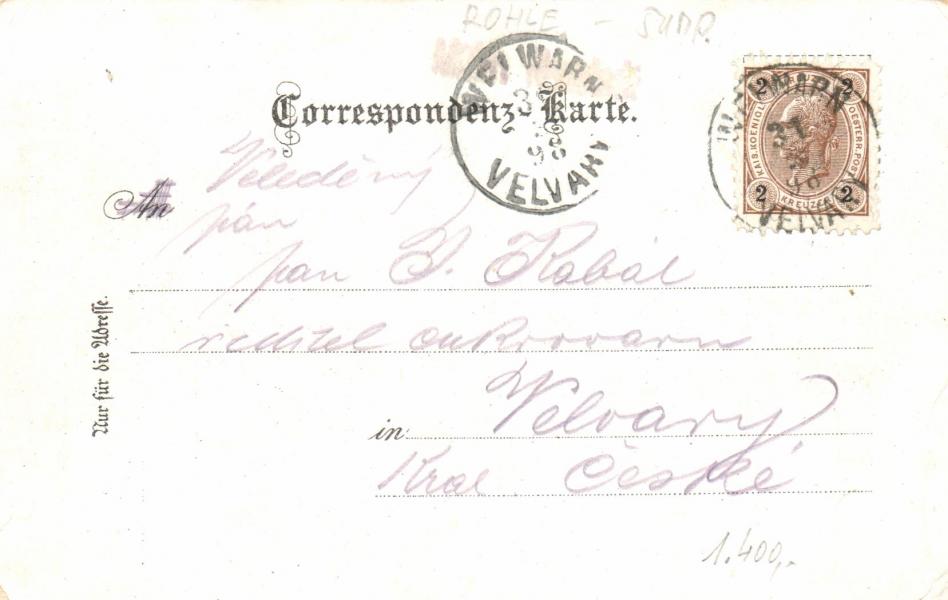 ROHLE - ŠUMP.
Correspondenz-Karte.
WELWARN
31
98
VELVARY
2 2
KAIS. KOENIGL. OESTERR. POST
2 KREUZER 2
WELWARN
31
98
VELVARY
Veleděný
An
pán
pan J. Kabál
ředitel cukrovaru
in Velvary
Král České
Nur für die Adresse.
1.400,-